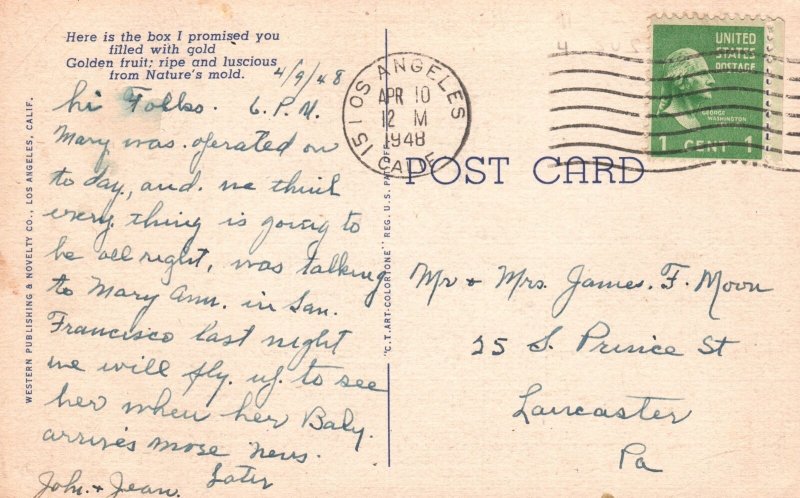 Here is the box I promised you
filled with gold
Golden fruit; ripe and luscious
from Nature's mold.
4/9/48
hi Folks. 6. P.M.
Mary was. operated on
to day, and. we think
every. thing is going to
be all right, was talking
to Mary Ann. in San.
Francisco last night
we will fly. up. to see
her when her Baby.
arrives more news.
Later
John. + Jean.
WESTERN PUBLISHING & NOVELTY CO., LOS ANGELES, CALIF.
"C.T. ART-COLORTONE" REG. U.S. PAT. OFF.
LOS ANGELES
APR 10
12 M
1948
CALIF.
POST CARD
UNITED
STATES
POSTAGE
GEORGE
WASHINGTON
1 CENT 1
Mr + Mrs. James. F. Moon
25 S. Prince St
Lancaster
Pa